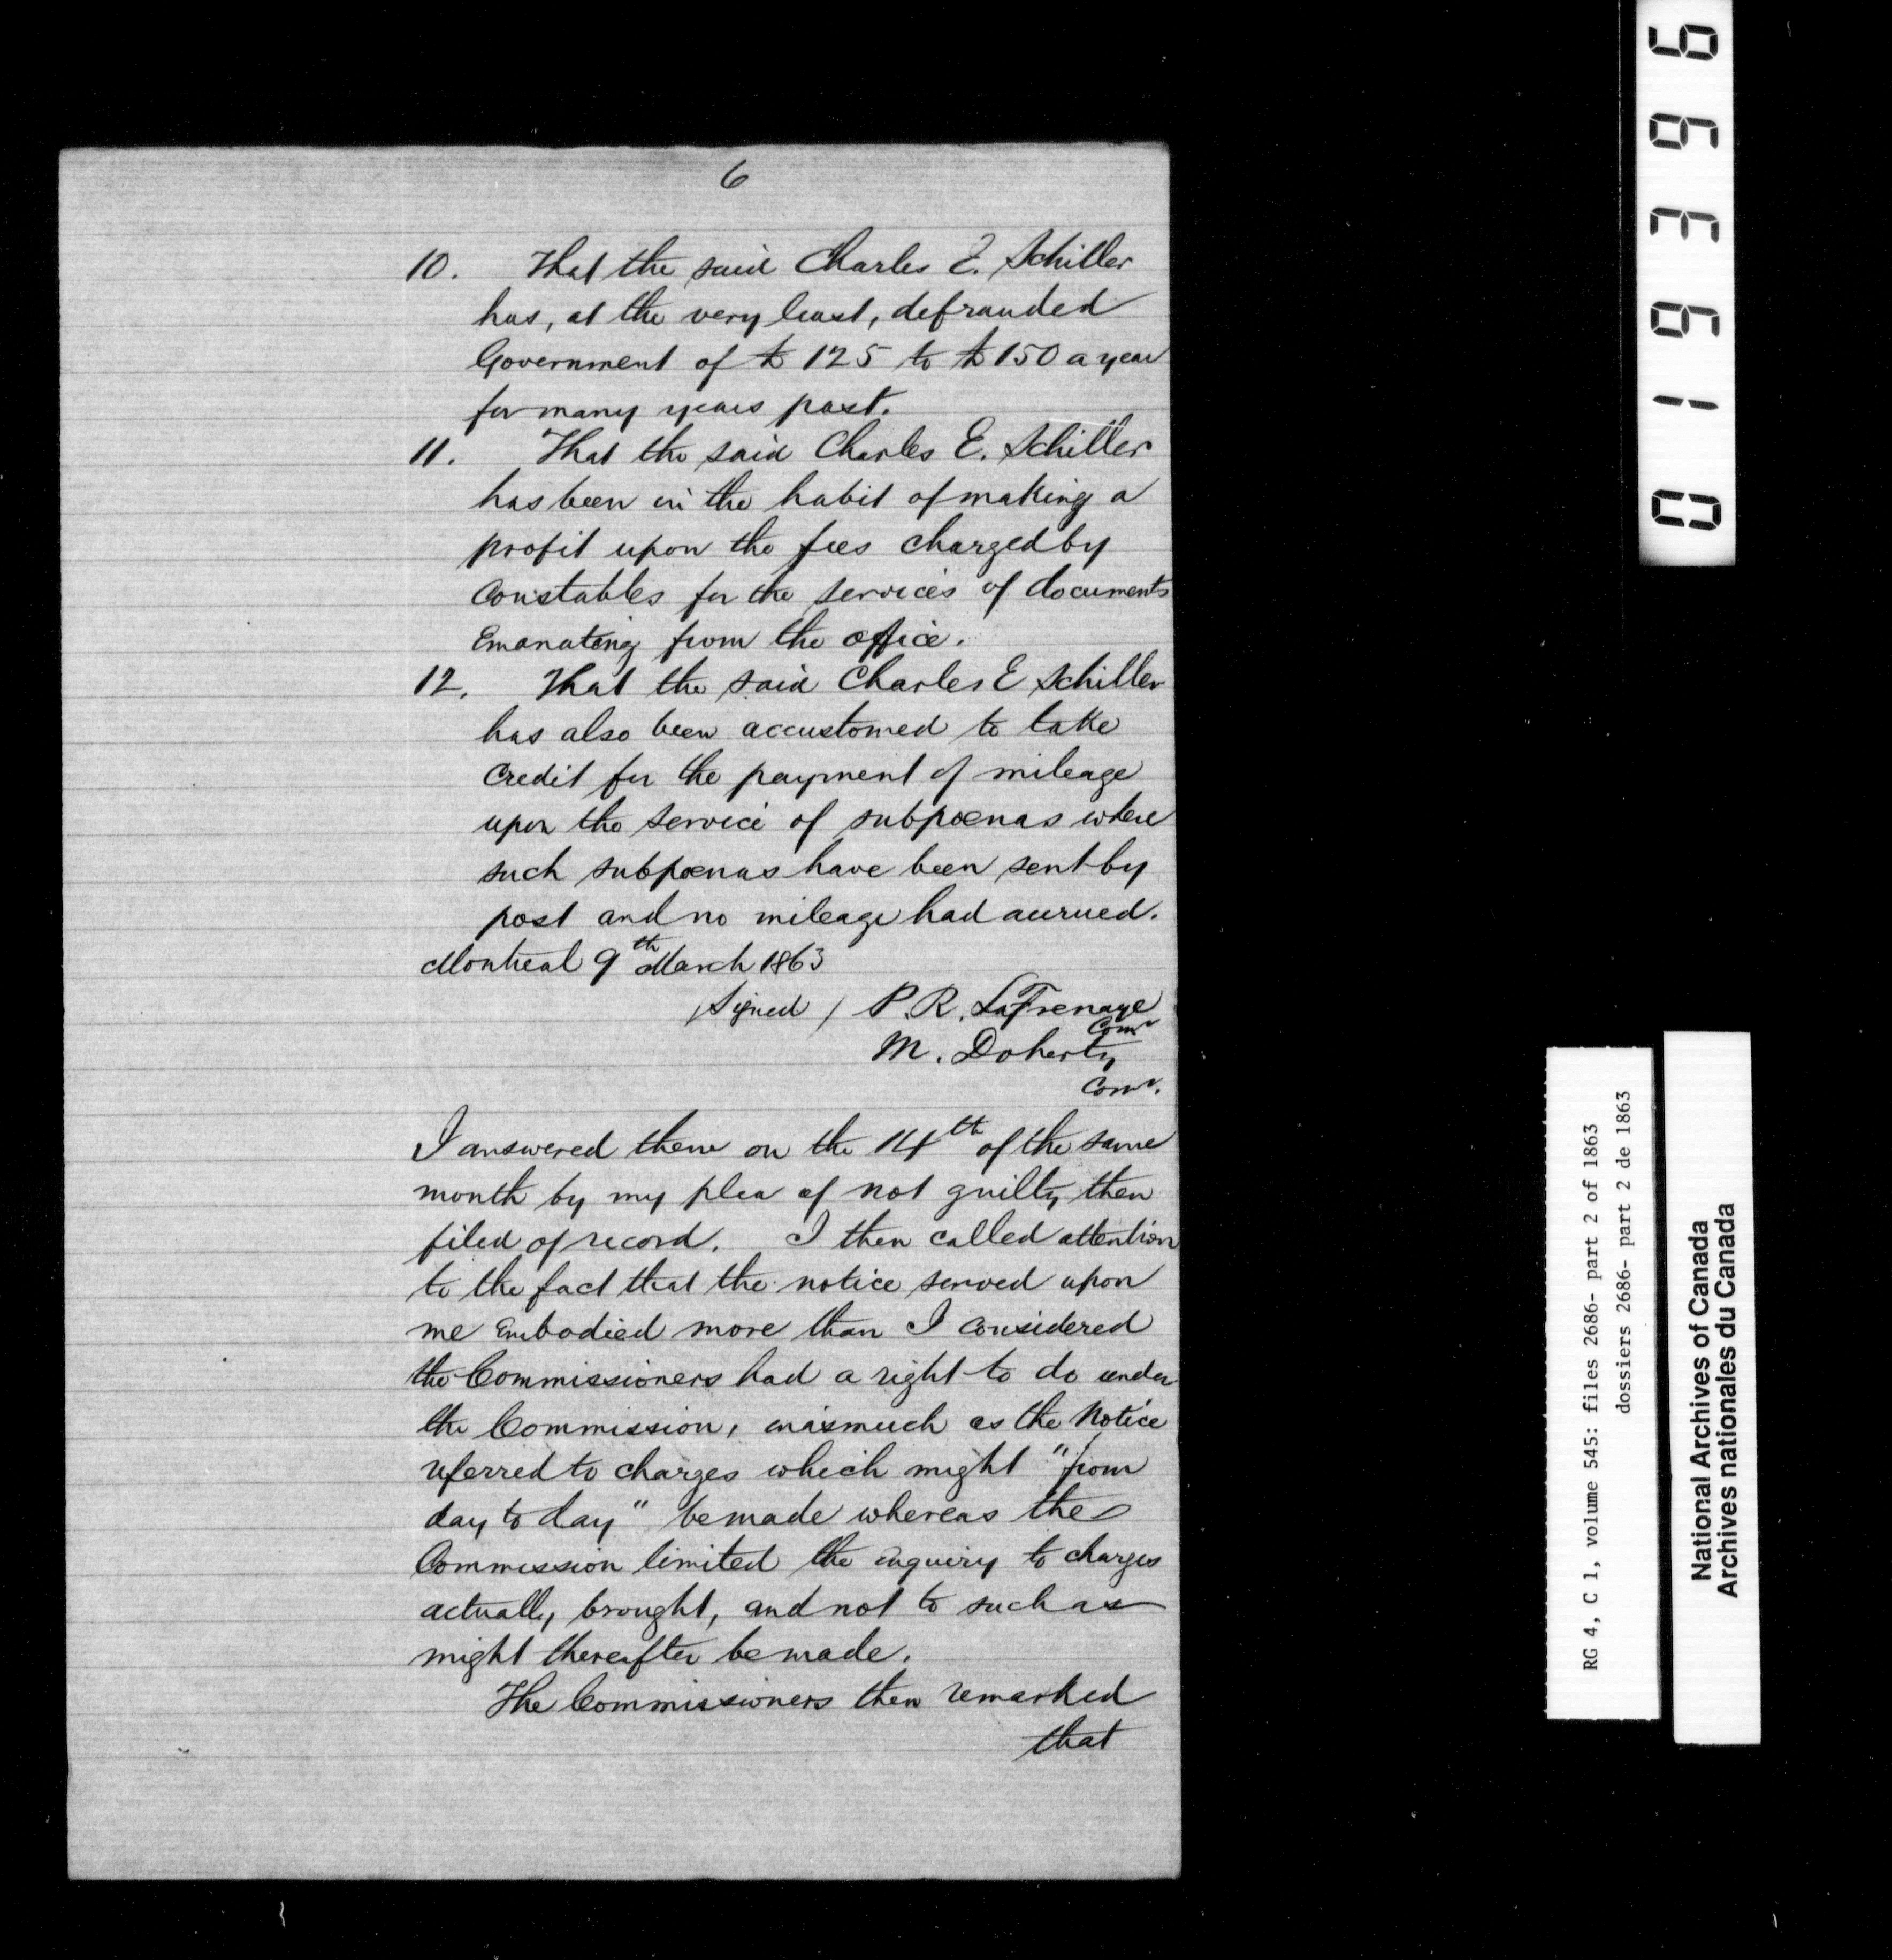 6
10. That the said Charles E. Schiller
has, at the very least, defrauded
Government of £125 to £150 a year
for many years past.
11. That the said Charles E. Schiller
has been in the habit of making a
profit upon the fees charged by
Constables for the services of documents
Emanating from the office.
12. That the said Charles E Schiller
has also been accustomed to take
Credit for the payment of mileage
upon the service of subpœnas where
such subpœnas have been sent by
post and no mileage had accrued.
Montreal 9th March 1863
/Signed/ P. R. LaFrenaye
Comr
M. Doherty
Comr.
I answered them on the 14th of the same
month by my plea of not guilty then
filed of record. I then called attention
to the fact that the notice served upon
me Embodied more than I Considered
the Commissioners had a right to do under
the Commission, inasmuch as the Notice
referred to charges which might "from
day to day" be made whereas the
Commission limited the Enquiry to charges
actually brought, and not to such as
might thereafter be made.
The Commissioners then remarked
that
019396
RG 4, C 1, volume 545: files 2686- part 2 of 1863
dossiers 2686- part 2 de 1863
National Archives of Canada
Archives nationales du Canada